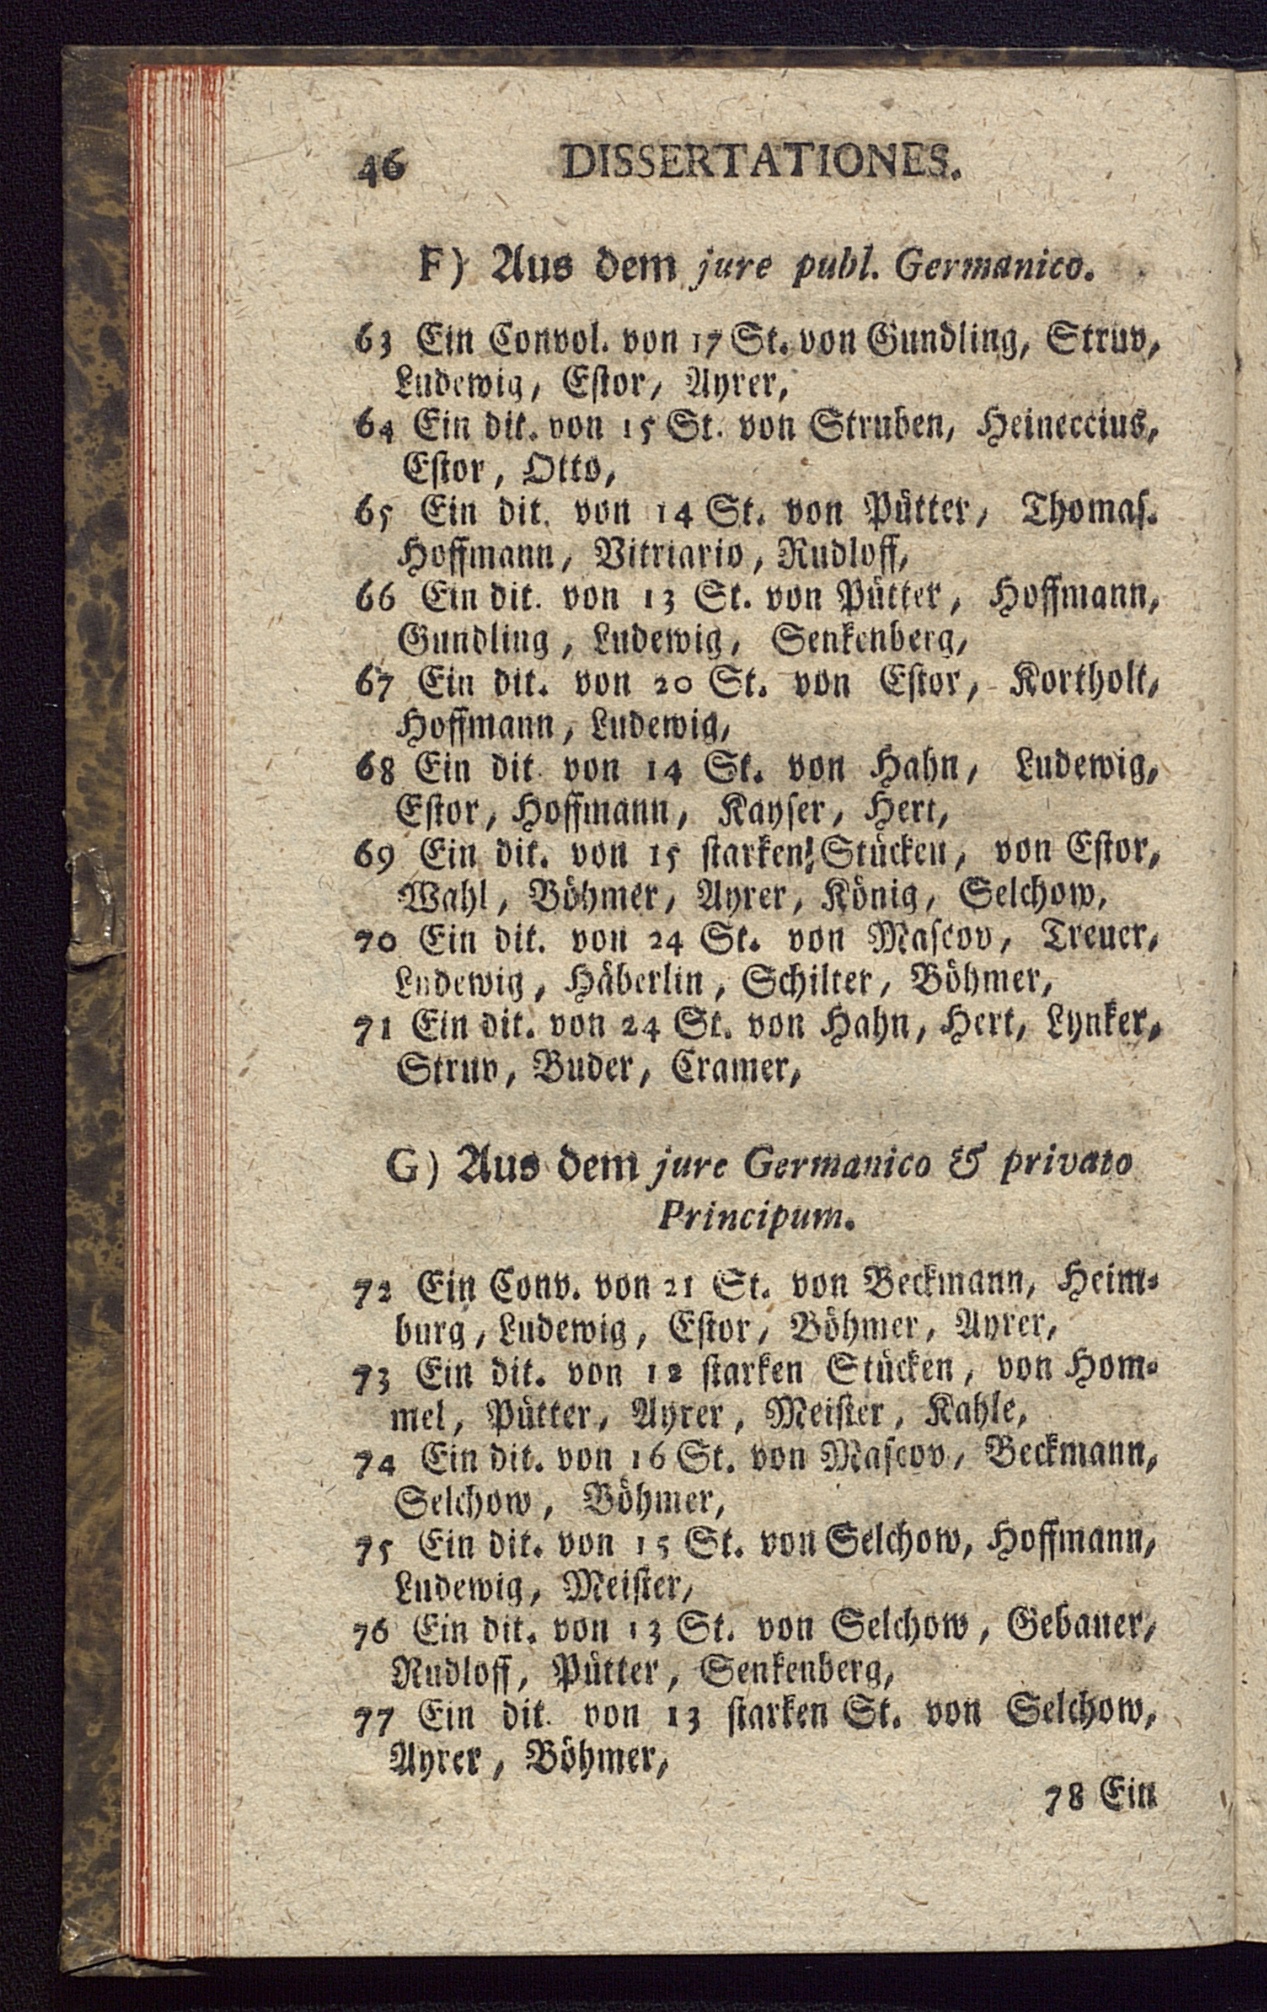 46 DISSERTATIONES.
F) Aus dem jure publ. Germanico.
63 Ein Convol. von 17 St. von Gundling, Struv,
Ludewig, Estor, Ayrer,
64 Ein dit. von 15 St. von Struben, Heineccius,
Estor, Otto,
65 Ein dit. von 14 St. von Pütter, Thomas.
Hoffmann, Vitriario, Rudloff,
66 Ein dit. von 13 St. von Pütter, Hoffmann,
Gundling, Ludewig, Senkenberg,
67 Ein dit. von 20 St. von Estor, Kortholt,
Hoffmann, Ludewig,
68 Ein dit. von 14 St. von Hahn, Ludewig,
Estor, Hoffmann, Kayser, Hert,
69 Ein dit. von 15 starken! Stücken, von Estor,
Wahl, Böhmer, Ayrer, König, Selchow,
70 Ein dit. von 24 St. von Mascov, Treuer,
Ludewig, Häberlin, Schilter, Böhmer,
71 Ein dit. von 24 St. von Hahn, Hert, Lynker,
Struv, Buder, Cramer,
G) Aus dem jure Germanico & privato
Principum.
72 Ein Conv. von 21 St. von Beckmann, Heim-
burg, Ludewig, Estor, Böhmer, Ayrer,
73 Ein dit. von 12 starken Stücken, von Hom-
mel, Pütter, Ayrer, Meister, Kahle,
74 Ein dit. von 16 St. von Mascov, Beckmann,
Selchow, Böhmer,
75 Ein dit. von 15 St. von Selchow, Hoffmann,
Ludewig, Meister,
76 Ein dit. von 13 St. von Selchow, Gebauer,
Rudloff, Pütter, Senkenberg,
77 Ein dit. von 13 starken St. von Selchow,
Ayrer, Böhmer,
78 Ein